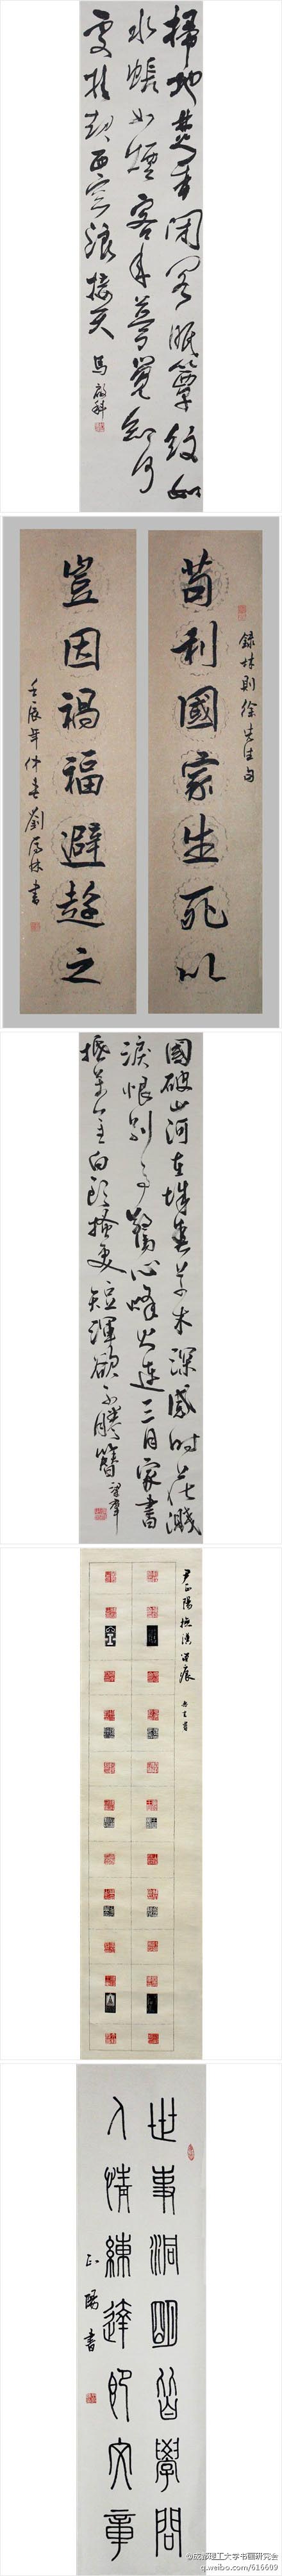 掃地焚香閉閣眠簟紋如
水帳如煙客來夢覺知何
處挂起西窗浪接天
馬啟科
錄林則徐先生句
苟利國家生死以
豈因禍福避趨之
壬辰年仲春劉林書
國破山河在城春草木深感時花濺
淚恨別鳥驚心烽火連三月家書
抵萬金白頭搔更短渾欲不勝簪
尹正陽撫漢留痕
世事洞明皆學問
人情練達即文章
正陽書
@成都理工大学书画研究会
q.weibo.com/616609